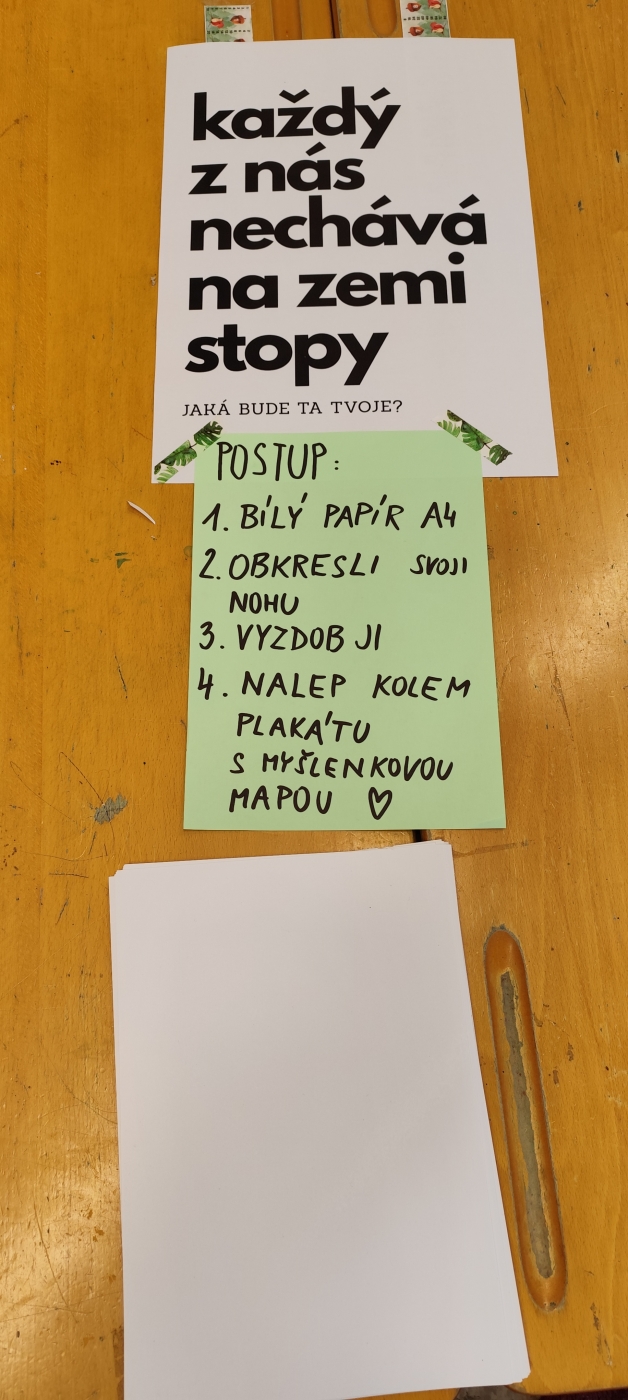 každý
z nás
nechává
na zemi
stopy
JAKÁ BUDE TA TVOJE?
POSTUP:
1. BÍLÝ PAPÍR A4
2. OBKRESLI SVOJI
NOHU
3. VYZDOB JI
4. NALEP KOLEM
PLAKÁTU
S MYŠLENKOVOU
MAPOU ♡